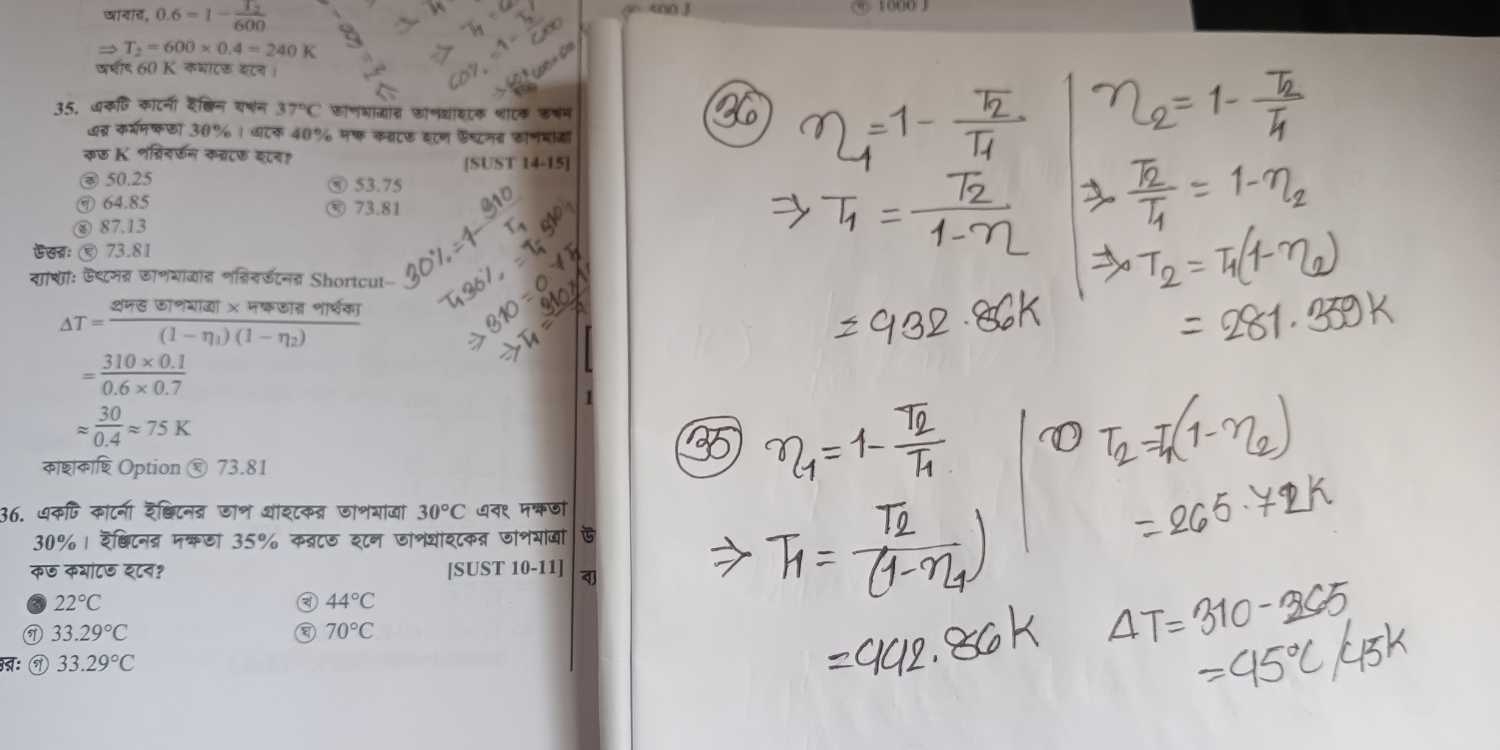 আবার, 0.6 = 1 − T₂/600
⇒ T₂ = 600 × 0.4 = 240 K
অর্থাৎ 60 K কমাতে হবে।
35. একটি কার্নো ইঞ্জিন যখন 37°C তাপমাত্রায় তাপগ্রাহকে থাকে তখন
এর কর্মদক্ষতা 30%। একে 40% দক্ষ করতে হলে উৎসের তাপমাত্রা
কত K পরিবর্তন করতে হবে?
[SUST 14-15]
ক 50.25
খ 53.75
গ 64.85
ঘ 73.81
ঙ 87.13
উত্তর: ঘ 73.81
ব্যাখ্যা: উৎসের তাপমাত্রার পরিবর্তনের Shortcut–
ΔT = প্রদত্ত তাপমাত্রা × দক্ষতার পার্থক্য / (1 − η₁) (1 − η₂)
= 310 × 0.1 / 0.6 × 0.7
≈ 30/0.4 ≈ 75 K
কাছাকাছি Option ঘ 73.81
36. একটি কার্নো ইঞ্জিনের তাপ গ্রাহকের তাপমাত্রা 30°C এবং দক্ষতা
30%। ইঞ্জিনের দক্ষতা 35% করতে হলে তাপগ্রাহকের তাপমাত্রা
কত কমাতে হবে?
[SUST 10-11]
22°C
খ 44°C
গ 33.29°C
ঘ 70°C
গ 33.29°C
30% = 1 − 310/T₁
1000 J
36
η₁ = 1 − T₂/T₁
⇒ T₁ = T₂/1−η
= 432.86K
η₂ = 1 − T₂/T₁
⇒ T₂/T₁ = 1−η₂
⇒ T₂ = T₁(1−η₂)
= 281.359K
35
η₁ = 1 − T₂/T₁
⇒ T₁ = T₂/(1−η₁)
= 442.86K
T₂ = T₁(1−η₂)
= 265.72K
ΔT = 310 − 265
= 45°C/45K